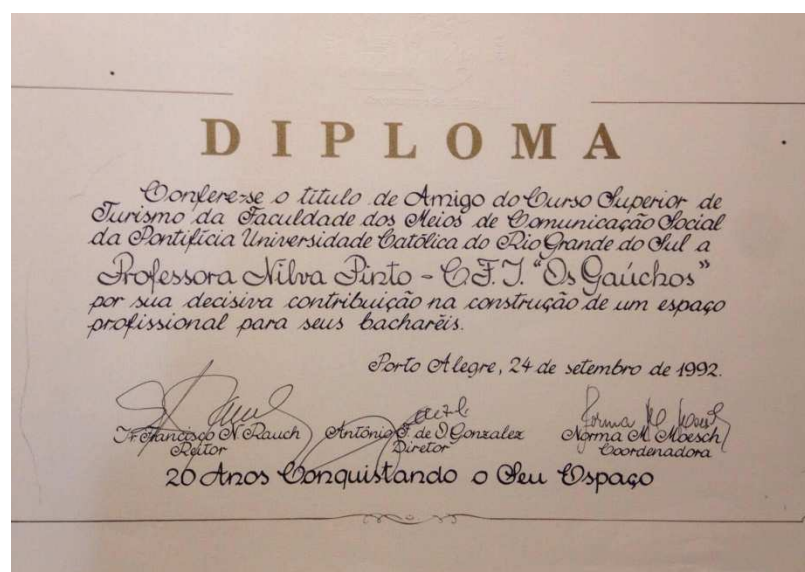 DIPLOMA
Confere-se o título de Amigo do Curso Superior de
Turismo da Faculdade dos Meios de Comunicação Social
da Pontifícia Universidade Católica do Rio Grande do Sul a
Professora Nilva Pinto - C.F.J. "Os Gaúchos"
por sua decisiva contribuição na construção de um espaço
profissional para seus bacharéis.
Porto Alegre, 24 de setembro de 1992.
Ir. Francisco N. Rauch António F. de D. Gonzalez Norma M. Moesch
Reitor Diretor Coordenadora
20 Anos Conquistando o Seu Espaço